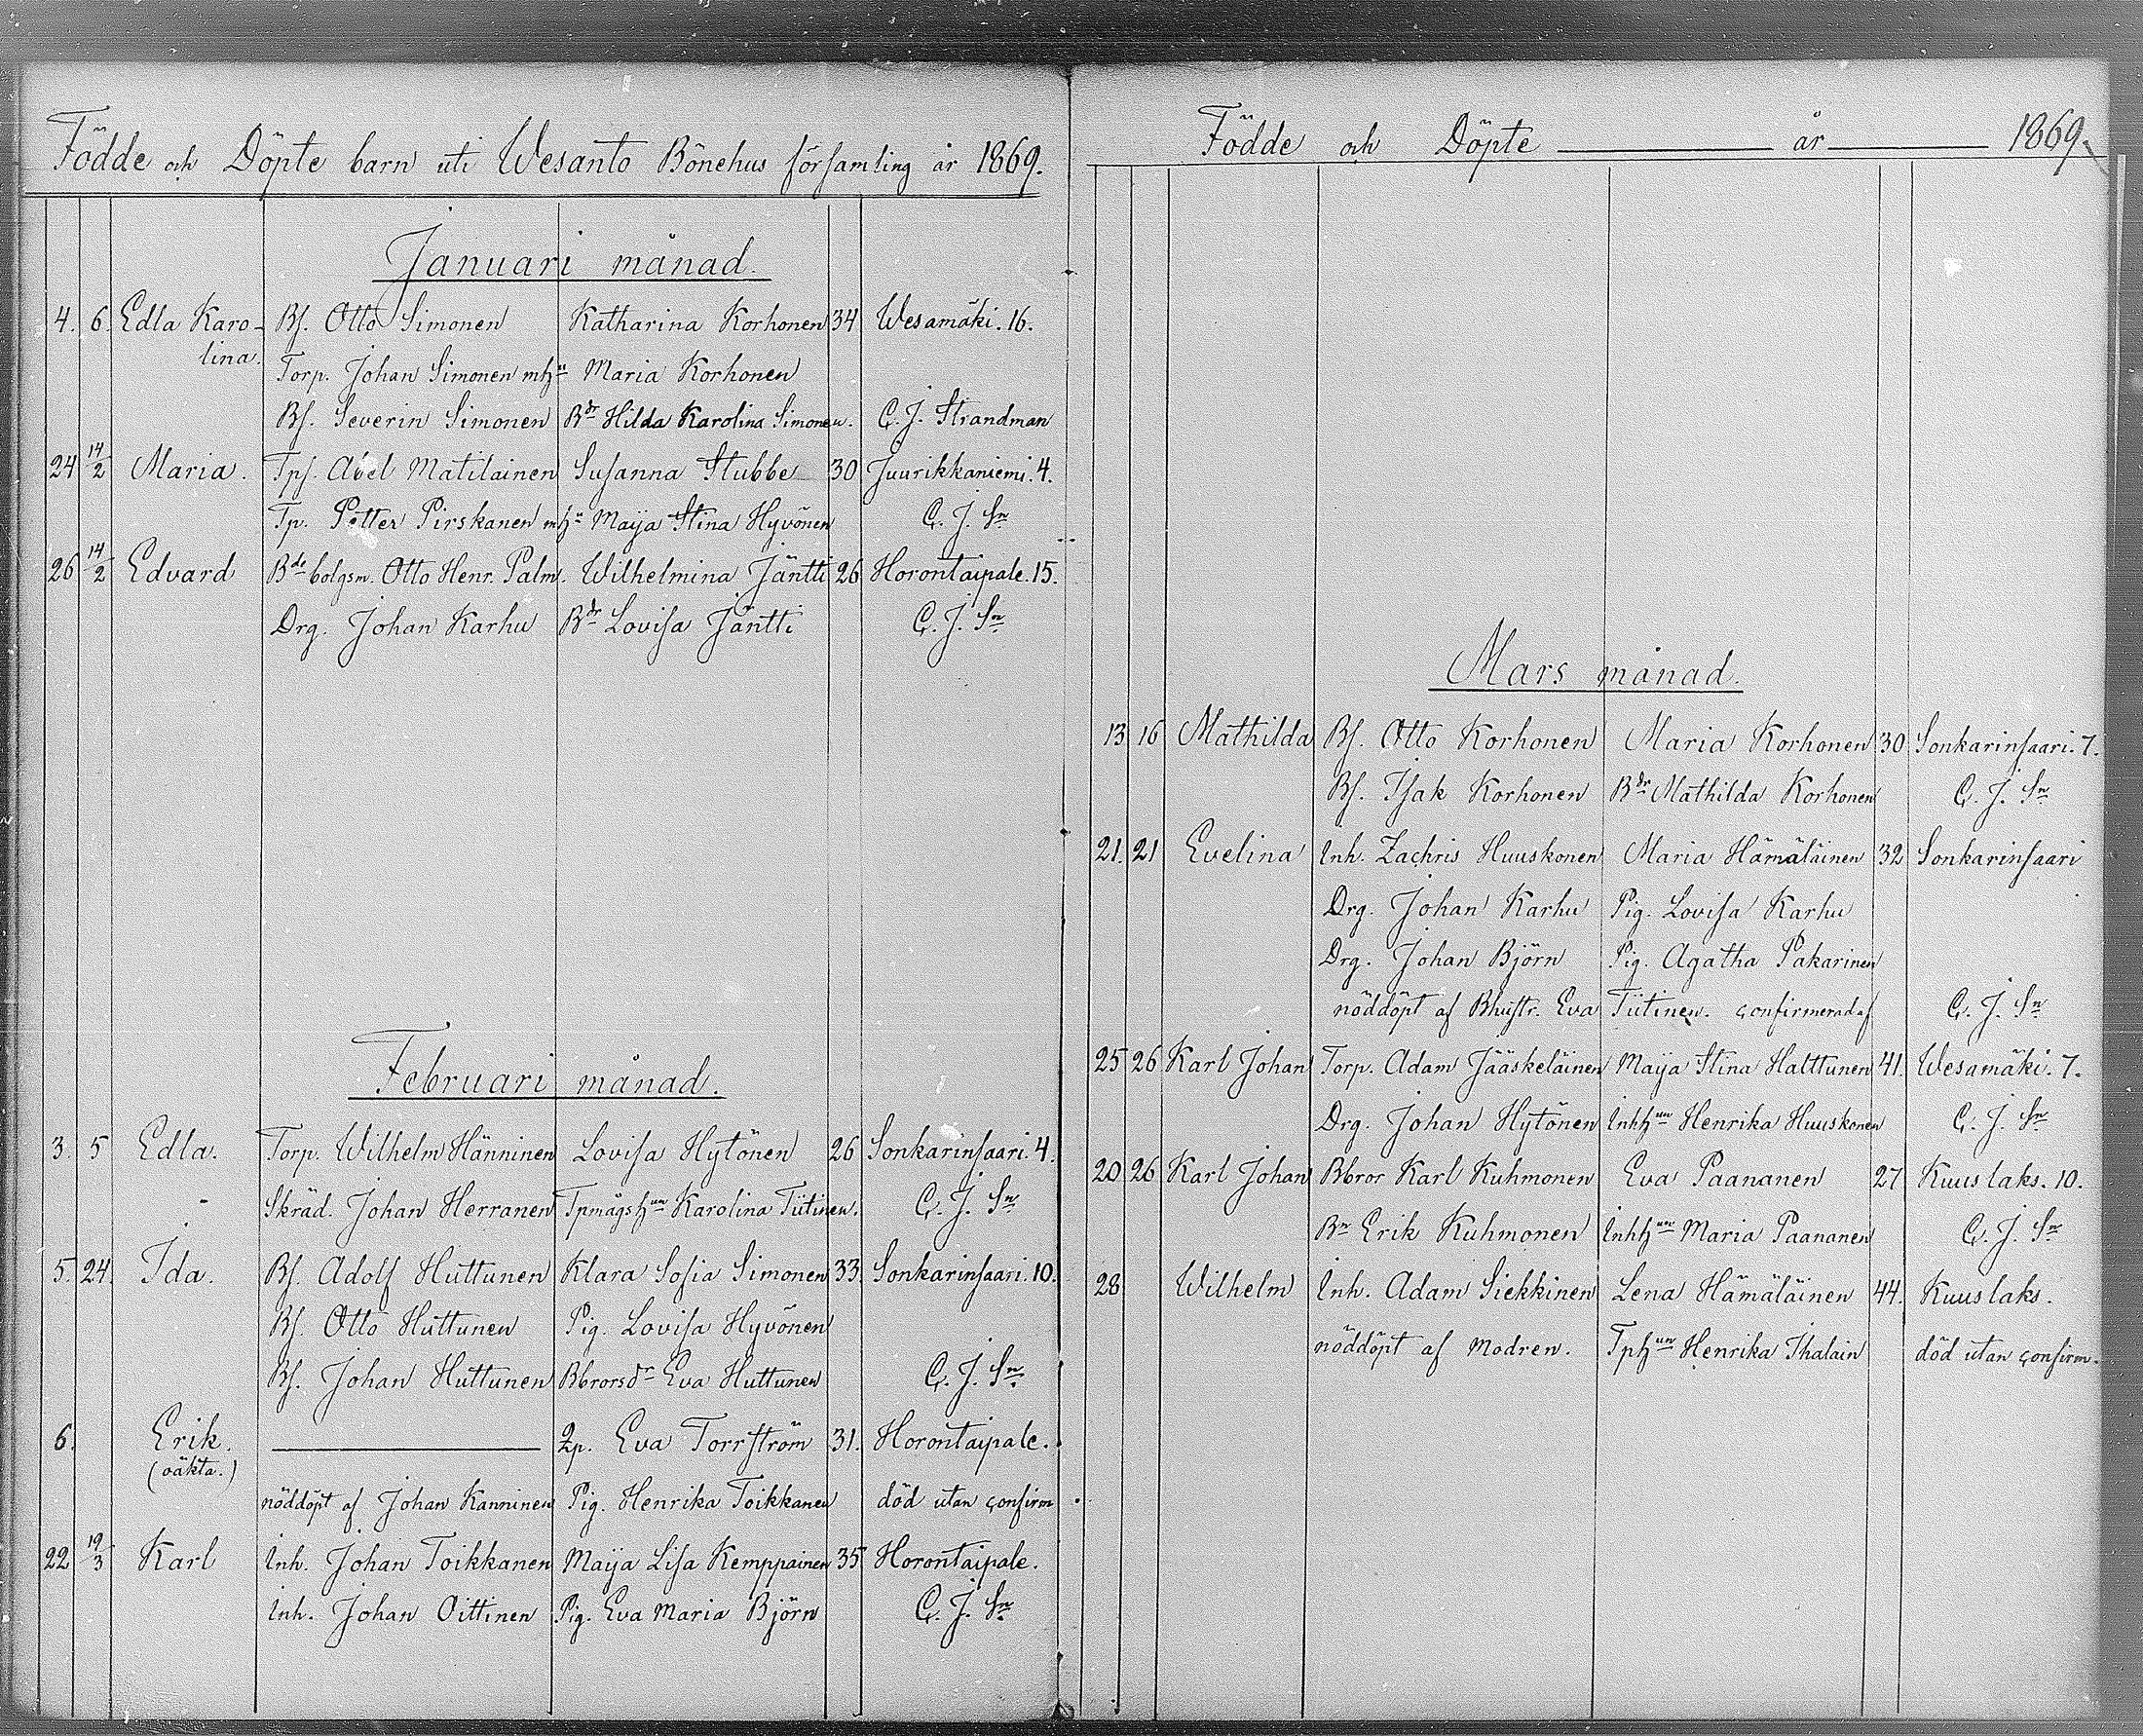 Födde och Döpte barn uti Wesanto Bönehus församling år 1869.
Januari månad.
4. 6. Edla Karo- Bs. Otto Simonen Katharina Korhonen 34 Wesamäki. 16.
lina. Torp. Johan Simonen mhu Maria Korhonen
Bs. Severin Simonen Bdr Hilda Karolina Simonen. C. J. Strandman
24 14/2 Maria. Tps. Abel Matilainen Susanna Stubbe 30 Juurikkaniemi. 4.
Tp. Petter Pirskanen mhu Maija Stina Hyvönen C. J. Sn
26 14/2 Edvard Bde bolgsm. Otto Henr. Palm. Wilhelmina Jäntti 26 Horontaipale. 15.
Drg. Johan Karhu Bdr Lovisa Jäntti C. J. Sn
Februari månad.
3. 5 Edla. Torp. Wilhelm Hänninen Lovisa Hytönen 26 Sonkarinsaari. 4.
Skräd. Johan Herranen Tpmågshun Karolina Tiitinen. C. J. Sn
5. 24. Ida. Bs. Adolf Huttunen Klara Sofia Simonen 33. Sonkarinsaari. 10.
Bs. Otto Huttunen Pig. Lovisa Hyvönen
Bs. Johan Huttunen Bbrorsdr Eva Huttunen C. J. Sn
6. Erik. Qp. Eva Torrström 31. Horontaipale.
(oäkta.)
nöddöpt af Johan Kanninen Pig. Henrika Toikkanen död utan confirm
22 19/3 Karl Inh. Johan Toikkanen Maija Lisa Kemppainen 35 Horontaipale.
Inh. Johan Oittinen Pig. Eva Maria Björn C. J. Sn
Födde och Döpte år 1869.
Mars månad.
13 16 Mathilda Bs. Otto Korhonen Maria Korhonen 30 Sonkarinsaari. 7.
Bs. Isak Korhonen Bdr Mathilda Korhonen C. J. Sn
21. 21 Evelina Inh. Zachris Huuskonen Maria Hämäläinen 32 Sonkarinsaari
Drg. Johan Karhu Pig. Lovisa Karhu
Drg. Johan Björn Pig. Agatha Pakarinen
nöddöpt af Bhustr. Eva Tiitinen. confirmerad af C. J. Sn
25 26 Karl Johan Torp. Adam Jääskeläinen Maija Stina Halttunen 41. Wesamäki. 7.
Drg. Johan Hytönen Inhhun Henrika Huuskonen C. J. Sn
20 26 Karl Johan Bbror Karl Kuhmonen Eva Paananen 27 Kuuslaks. 10.
Bn Erik Kuhmonen Inhhun Maria Paananen C. J. Sn
28 Wilhelm Inh. Adam Siekkinen Lena Hämäläinen 44. Kuuslaks.
nöddöpt af Modren. Tphun Henrika Ihalain död utan confirm.